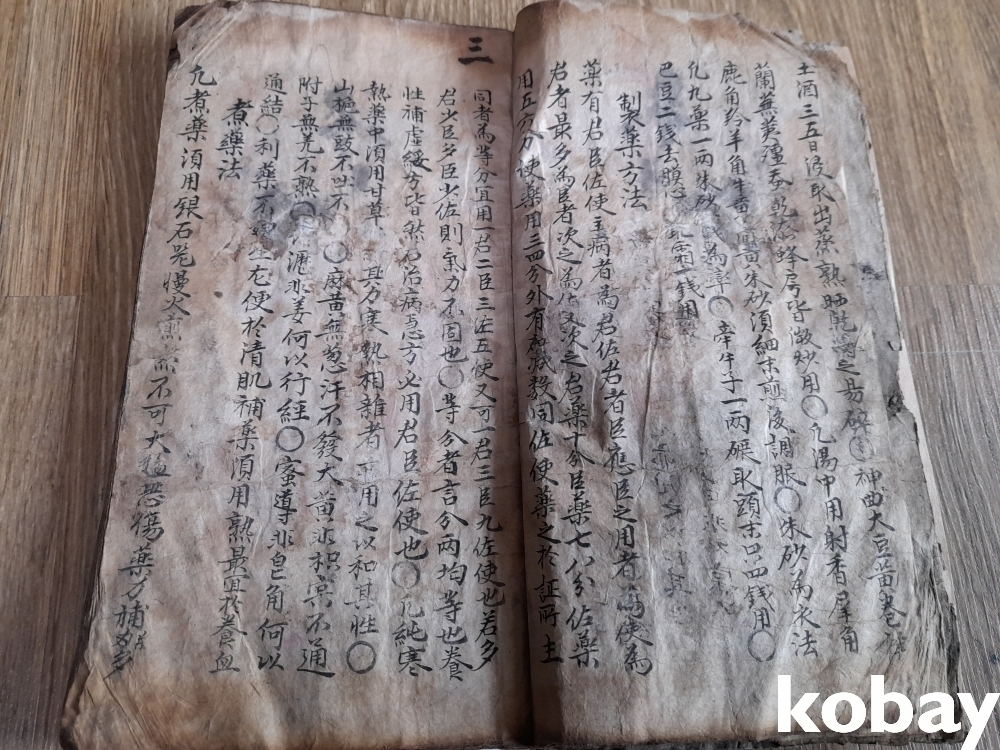 土酒三五日浸取出蒸熟晒乾 之易碎 神曲大豆黃卷
蘭蕪荑殭蚕乾 蜂房皆微炒用〇凡湯中用射香犀角
鹿角羚羊角牛黃 黃朱砂須細末煎後調服〇朱砂為衣法
凡丸藥一兩朱砂 錢為率〇牽牛子一兩碾取頭末只四錢用〇
巴豆二錢去膜心 霜一錢用
製藥方法
藥有君臣佐使主病者為君佐君者臣應臣之用者為使為
君者最多為臣者次之為佐又次之君藥十分臣藥七八分佐藥
用五六分使藥用三四分外有加减数同佐使藥之於証所主
三
同者為等分宜用一君二臣三佐五使又可一君三臣九佐使也若多
君少臣多臣少佐則氣力不固也〇等分者言分兩均等也養
性補虛緩方皆然若治病 方必用君臣佐使也〇凡純寒
熱藥中須用甘草 其力寒熱相雜者 用之以和其性〇
山梔無豉不吐不 〇麻黃無葱汗不發大黃非枳宲不通
附子無羌不熱〇 漉非姜何以行經〇蜜導非皂角何以
通結〇利藥 生尤便於清肌補藥須用熟最宜於養血
煮藥法
凡煮藥須用銀石器慢火煎 不可大猛恐傷藥力補